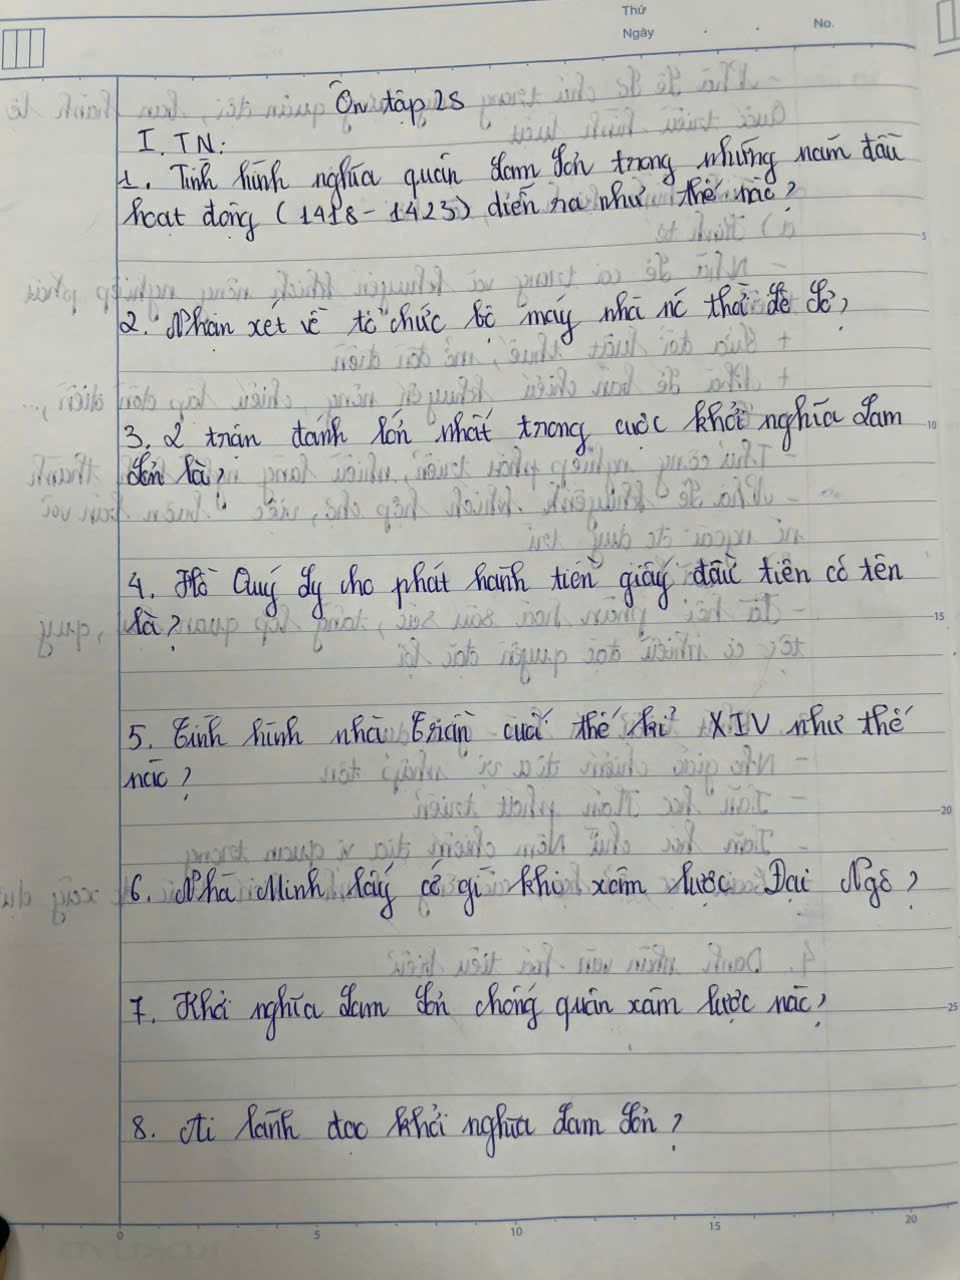 Thứ
Ngày
No.
Ôn tập 2S
I. TN:
1. Tình hình nghĩa quân Lam Sơn trong những năm đầu
hoạt động (1418-1423) diễn ra như thế nào?
2. Nhận xét về tổ chức bộ máy nhà nc thời Lê Sơ?
3. 2 trận đánh lớn nhất trong cuộc khởi nghĩa Lam
Sơn là?
4. Hồ Quý Ly cho phát hành tiền giấy đầu tiên có tên
là?
5. Tình hình nhà Trần cuối thế kỉ XIV như thế
nào?
6. Nhà Minh lấy cớ gì khi xâm lược Đại Ngô?
7. Khởi nghĩa Lam Sơn chống quân xâm lược nào?
8. Ai lãnh đạo khởi nghĩa Lam Sơn?
5
10
15
20
25
0 5 10 15 20